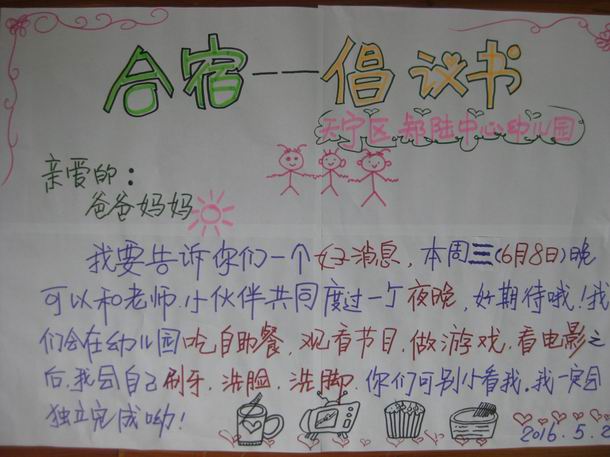 合宿--倡议书
天宁区.郑陆中心幼儿园
亲爱的：
爸爸妈妈
我要告诉你们一个好消息，本周三(6月8日)晚
可以和老师.小伙伴共同度过一个夜晚，好期待哦！我
们会在幼儿园吃自助餐、观看节目、做游戏、看电影之
后.我会自己刷牙、洗脸、洗脚.你们可别小看我.我一定会
独立完成哟！
2016.5.2